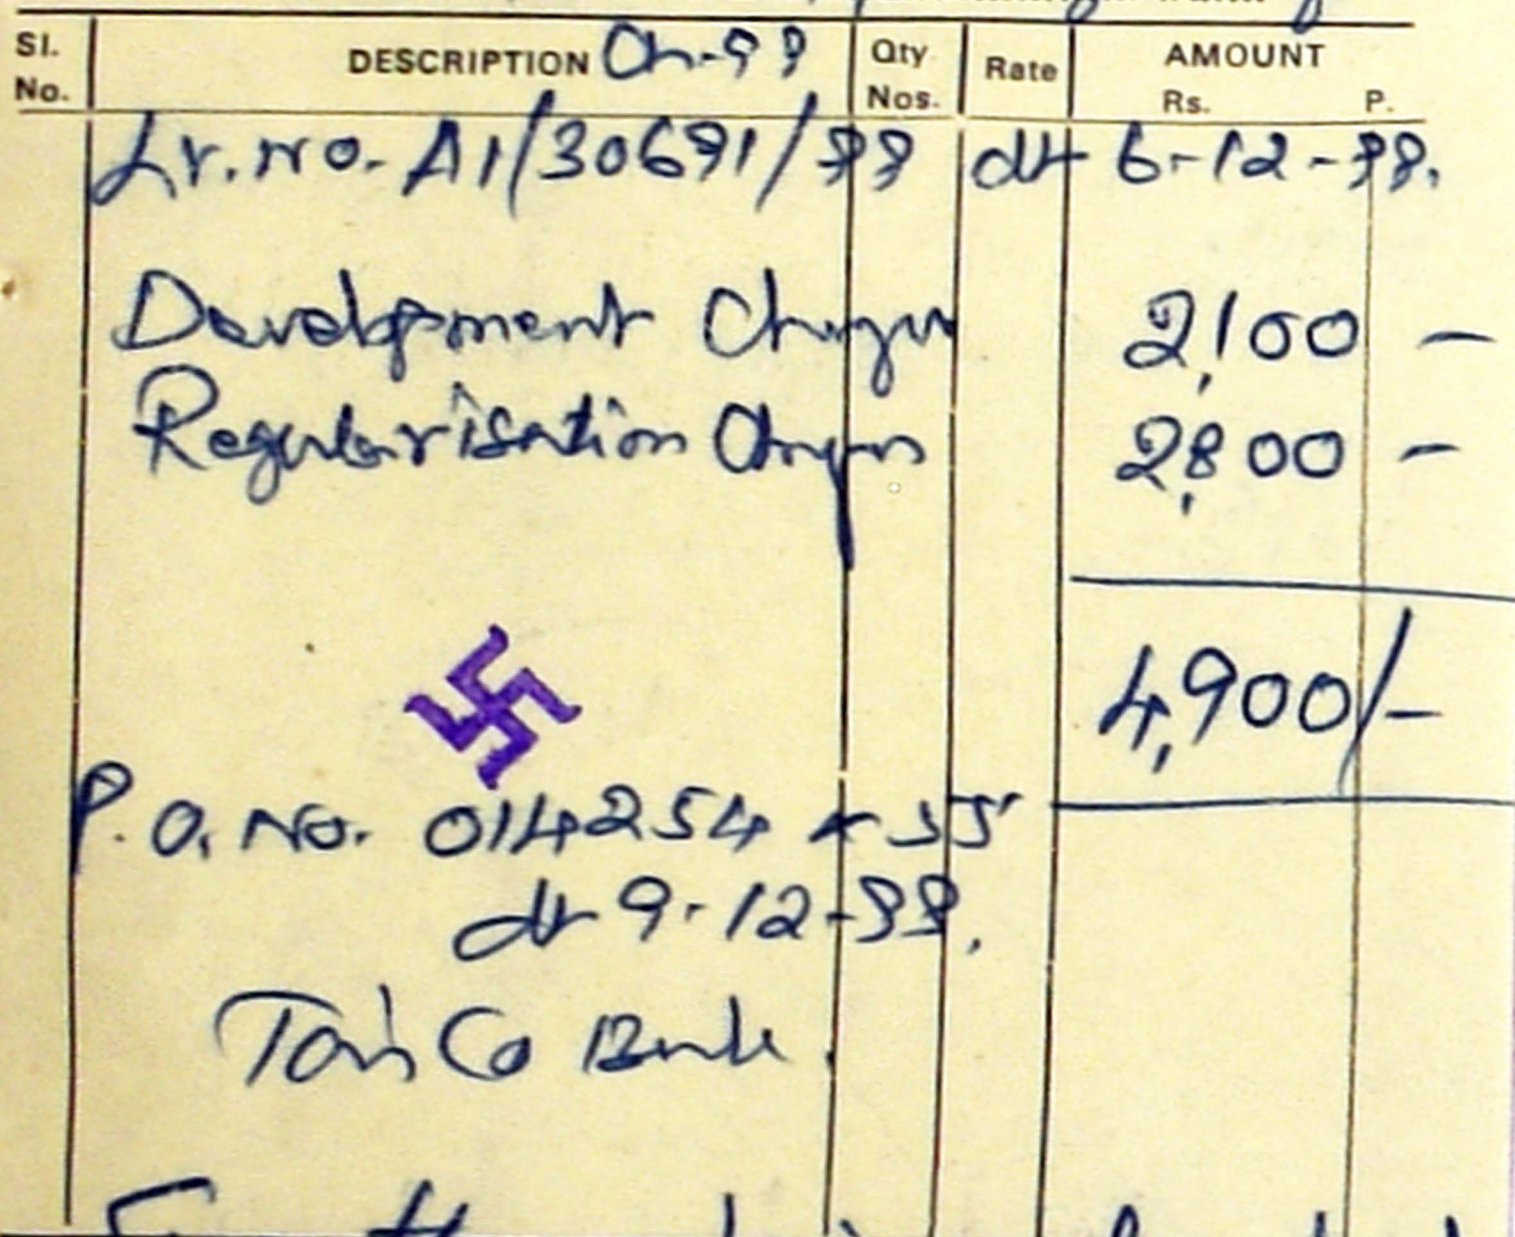 Sl. No. DESCRIPTION Ch-99 Qty Nos. Rate AMOUNT Rs. P.
Lr. No. A1/30691/99 dt 6-12-99.
Development Charges 2,100 –
Regularisation Charges 2,800 –
4,900/-
P.O. No. 014254 & 55
dt 9-12-99.
Co Bank.